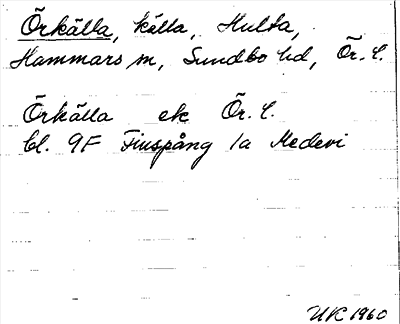 Örkälla, källa, Hulta,
Hammars sn, Sundbo hd, Ör. l.
Örkälla ek Ör. l.
bl. 9F Finspång 1a Medevi
UK 1960